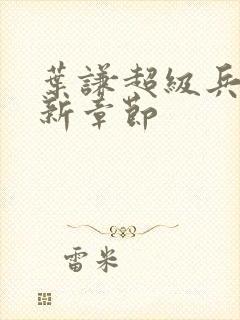 葉謙超級兵
新章節
雷米